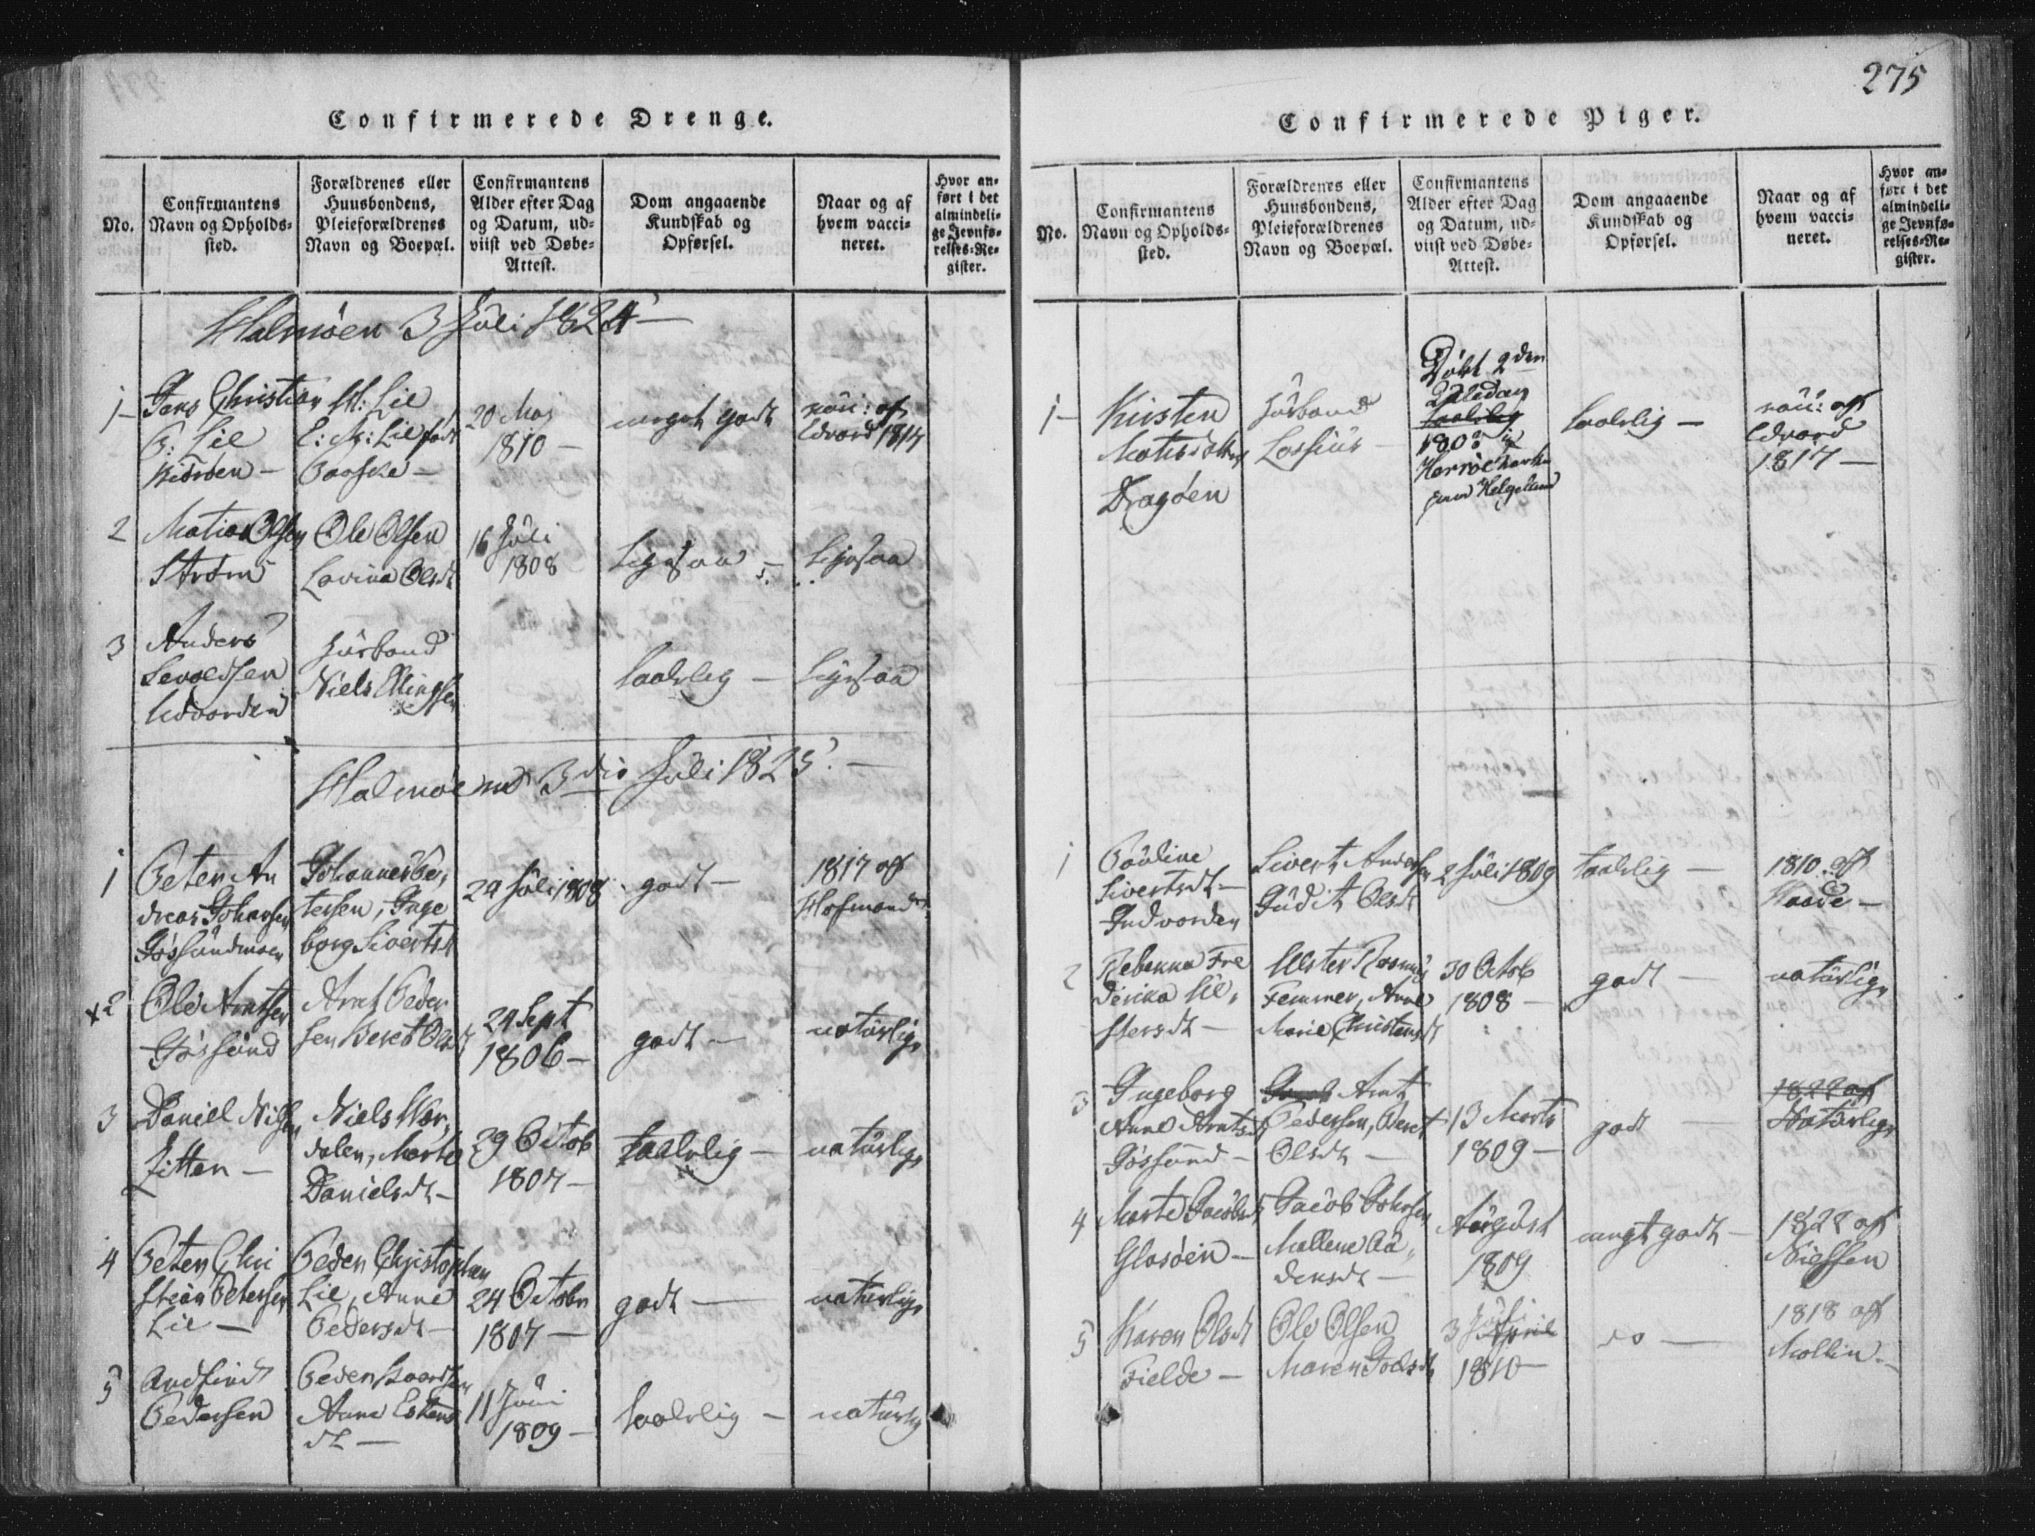 Confirmerede Drenge.
No.
Confirmantens
Navn og Opholds-
sted.
Forældrenes eller
Huusbondens,
Pleieforældrenes
Navn og Boepæl.
Confirmantens
Alder efter Dag
og Datum, ud-
viist ved Døbe-
Attest.
Dom angaaende
Kundskab og
Opførsel.
Naar og af
hvem vacci-
neret.
Hvor an-
ført i det
almindeli-
ge Jevnfø-
relses-Re-
gister.
Halmøen 3 Juli 1824
1
Jens Christian
P: Lie
H: Lie
E: M: Lie født
Paaske
20 Maj
1810
meget godt
1814
2
Matias Olsen
Strøm
Ole Olsen
Lavina Olsdt
16 Juli
1808
Ligesaa
Ligesaa
3
Anders
Sevaldsen
Udvorden
Husbond
Niels Ellingsen
taalelig
Ligesaa
Halmøen 3die Juli 1825.
1
Peter An
dreas Johansen
Jøssundmoen
Johannes Pe,
tersen, Inge
borg Sivertsd
24 Juli 1808
godt
1817 af
Hofmand
x2
Ole Arntsen
Jøssund
Arnt Peder
sen Beret Olsdt
24 Sept
1806
godt
naturlige
3
Daniel Nilsen
Zitter
Niels Wær,
dalen, Marte
Danielsdt
29 Octob
1807
taalelig
naturlige
4
Peter Chri
stian Petersen
Lie
Peder Christophen
Lie, Anne
Pedersdt
24 Octobr
1807
godt
naturlige
5
Andfindt
Pedersen
Peder Baardsen
Anne Estens
dt
11 Juni
1809
taalelig
naturlig
275
Confirmerede Piger.
No.
Confirmantens
Navn og Opholds-
sted.
Forældrenes eller
Huusbondens,
Pleieforældrenes
Navn og Boepæl.
Confirmantens
Alder efter Dag
og Datum, ud-
viist ved Døbe-
Attest.
Dom angaaende
Kundskab og
Opførsel.
Naar og af
hvem vacci-
neret.
Hvor an-
ført i det
almindeli-
ge Jevnfø-
relses-Re-
gister.
1
Kirsten
Matisdatter
Dragøen
Husbond
Lossius
Døbt 2den
Juledag
taalelig
180
Herrøe
paa Helgeland
taalelig
1817
1
Pauline
Sivertsdt
Indvorden
Sivert Andersen
Gudit Olsdt
2 Juli 1809
taalelig
1810 af
Waade
2
Rebekka Fre
derika Ul,
stersdt
Ulster Rasmus
Femmer, Anne
Marie Christensdt
30 Octob
1808
godt
naturlige
3
Ingeborg
Anne Arntsdt
Jøssund
Arnt
Pedersen, Beret
Olsdt
13 Marts
1809
godt
1822 af
Naturlige
4
Marte Jacobsdt
Glasøen
Jacob Johnsen
Mallene Aa,
densdt
August
1809
megt godt
1822 af
Nissen
5
Karen Olsdt
Fielde
Ole Olsen
Maren Joelsdt
3 Juli
April
1810
do
1818 af
Mollin